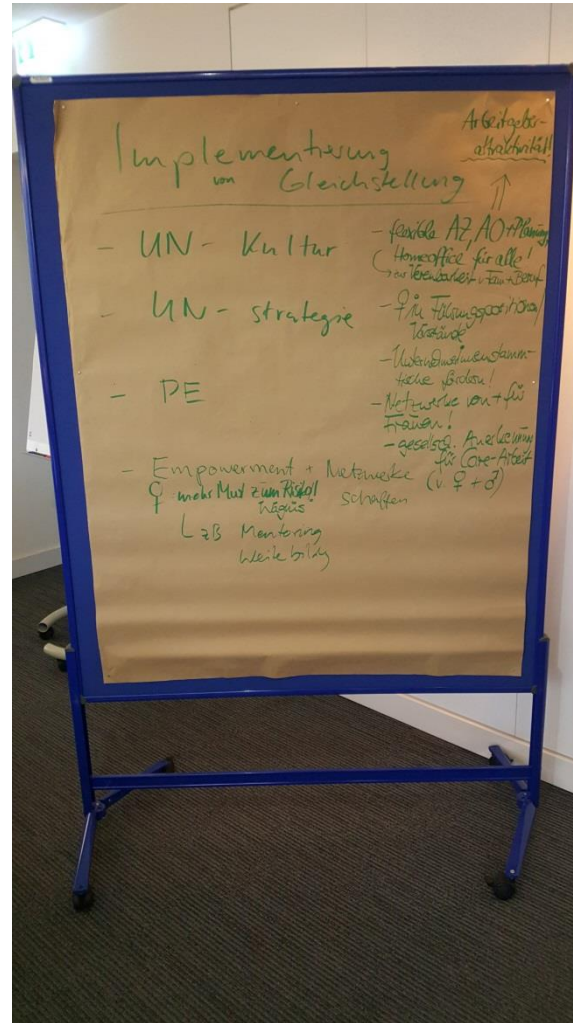 Implementierung
von Gleichstellung
- UN - Kultur
- UN - strategie
- PE
- Empowerment + Netzwerke
schaffen
♀ mehr Mut zum Risiko!
Wagnis
L zB Mentoring
Weiterbildg
Arbeitgeber-
attraktivität!
↑
- flexible AZ, AO + Planung,
Homeoffice für alle!
→ zur Vereinbarkeit v. Fam + Beruf
- ♀ in Führungspositionen/
Vorstände
- Unternehmens
fördern!
- Netzwerke von + für
Frauen!
- gesellsch. Anerkennung
für Care-Arbeit
(v. ♀ + ♂)